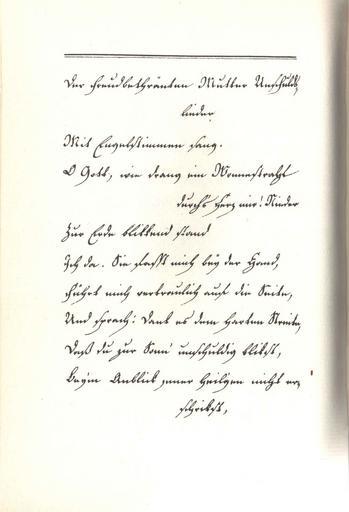 Der freudbethränten Mutter Unschulds⸗
lieder
Mit Engelstimmen sang.
O Gott, wie drang ein Wonnestrahl
durch's Herz mir! Nieder
Zur Erde blikkend stand
Ich da. Sie fasst mich bey der Hand,
Führt mich vertraulich auf die Seite,
Und sprach: Dank es dem harten Streite,
Daß du zur Sonn' unschuldig blikst,
Beym Anblik jener Heilgen nicht er⸗
schrikst,